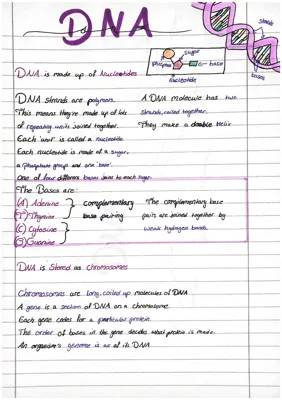 DNA
strands
bases
sugar
phosphate
base
nucleotide
DNA is made up of Nucleotides
DNA strands are polymers.
This means they're made up of lots
of repeating units joined together.
Each 'unit' is called a nucleotide.
Each nucleotide is made of a sugar,
a phosphate group and one 'base'.
one of four different bases joins to each sugar.
A DNA molecule has two
strands, coiled together.
They make a double helix
The Bases are:
(A) Adenine
(T) Thymine
(C) Cytosine
(G) Guanine
complementary
base pairing
The complementary base
pairs are joined together by
weak hydrogen bonds.
DNA is Stored as Chromosomes
Chromosomes are long, coiled up molecules of DNA
A gene is a section of DNA on a chromosome.
Each gene codes for a particular protein.
The order of bases in the gene decides what protein is made.
An organism's genome is all of its DNA